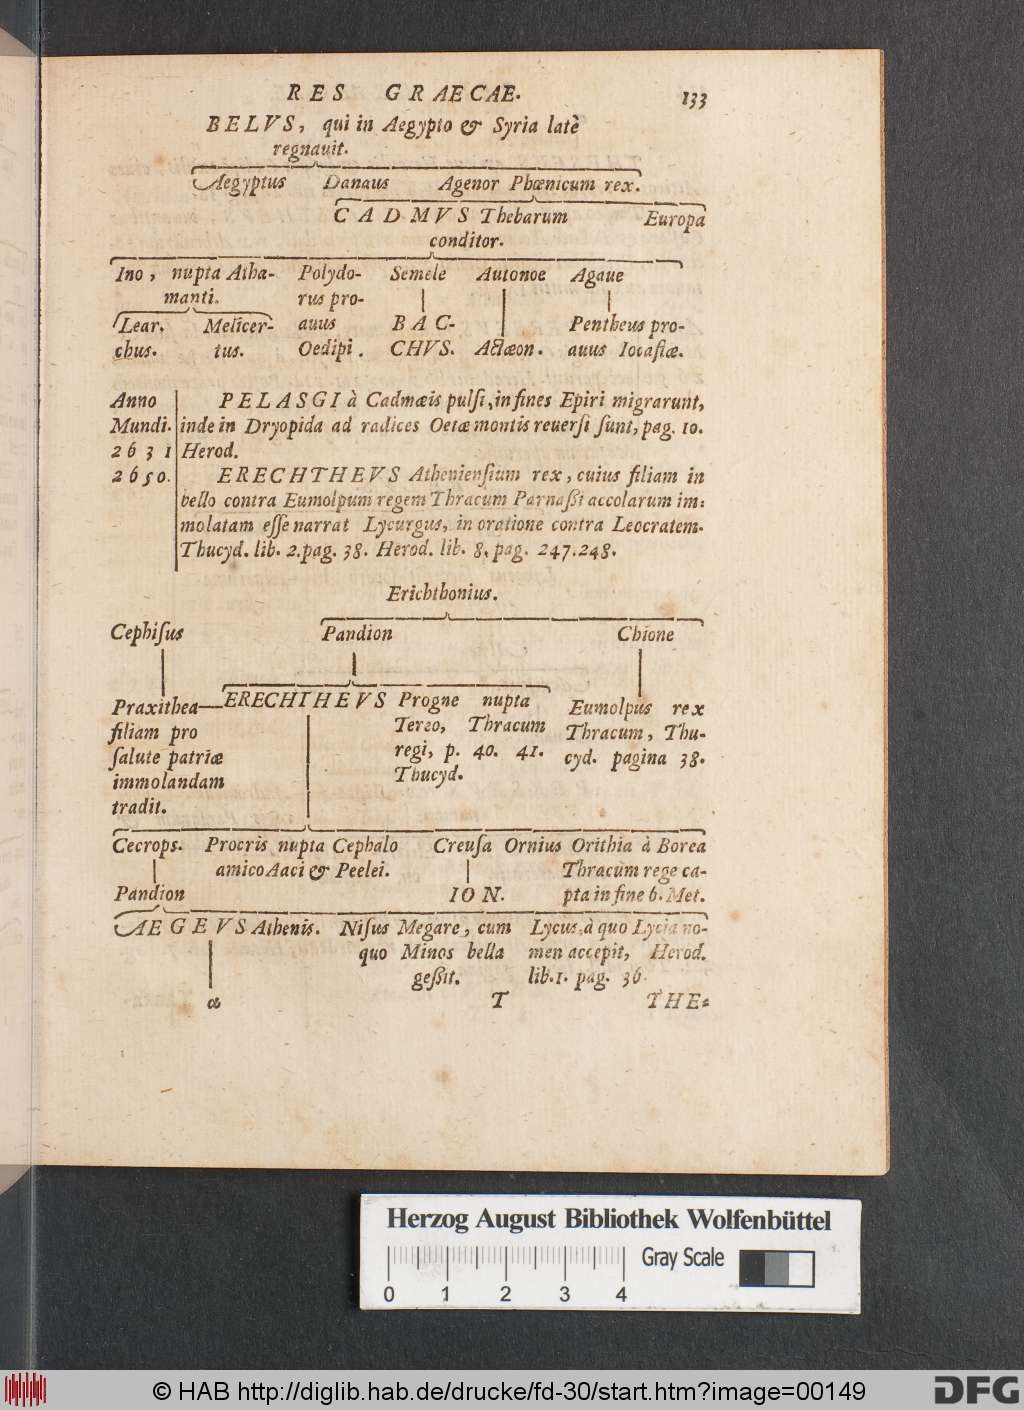 RES GRAECAE. 133
BELVS, qui in Aegypto & Syria latè
regnauit.
Aegyptus Danaus Agenor Phœnicum rex.
CADMVS Thebarum Europa
conditor.
Ino, nupta Atha- Polydo- Semele Autonoe Agaue
manti. rus pro-
Lear. Melicer- auus BAC- Pentheus pro-
chus. tus. Oedipi. CHVS. Actæon. auus Iocastæ.
Anno PELASGI à Cadmæis pulsi, in fines Epiri migrarunt,
Mundi. inde in Dryopida ad radices Oetæ montis reuersi sunt, pag. 10.
2631 Herod.
2650. ERECHTHEVS Atheniensium rex, cuius filiam in
bello contra Eumolpum regem Thracum Parnaßi accolarum im-
molatam esse narrat Lycurgus, in oratione contra Leocratem.
Thucyd. lib. 2. pag. 38. Herod. lib. 8. pag. 247.248.
Erichthonius.
Cephisus Pandion Chione
Praxithea ERECHTHEVS Progne nupta Eumolpus rex
filiam pro Tereo, Thracum Thracum, Thu-
salute patriæ regi, p. 40. 41. cyd. pagina 38.
immolandam Thucyd.
tradit.
Cecrops. Procris nupta Cephalo Creusa Ornius Orithia à Borea
amico Aaci & Peelei. Thracum rege ca-
Pandion ION. pta in fine 6. Met.
AEGEVS Athenis. Nisus Megare, cum Lycus, à quo Lycia no-
quo Minos bella men accepit, Herod.
geßit. lib. 1. pag. 36.
T THE-
Herzog August Bibliothek Wolfenbüttel
Gray Scale
0 1 2 3 4
© HAB http://diglib.hab.de/drucke/fd-30/start.htm?image=00149
DFG